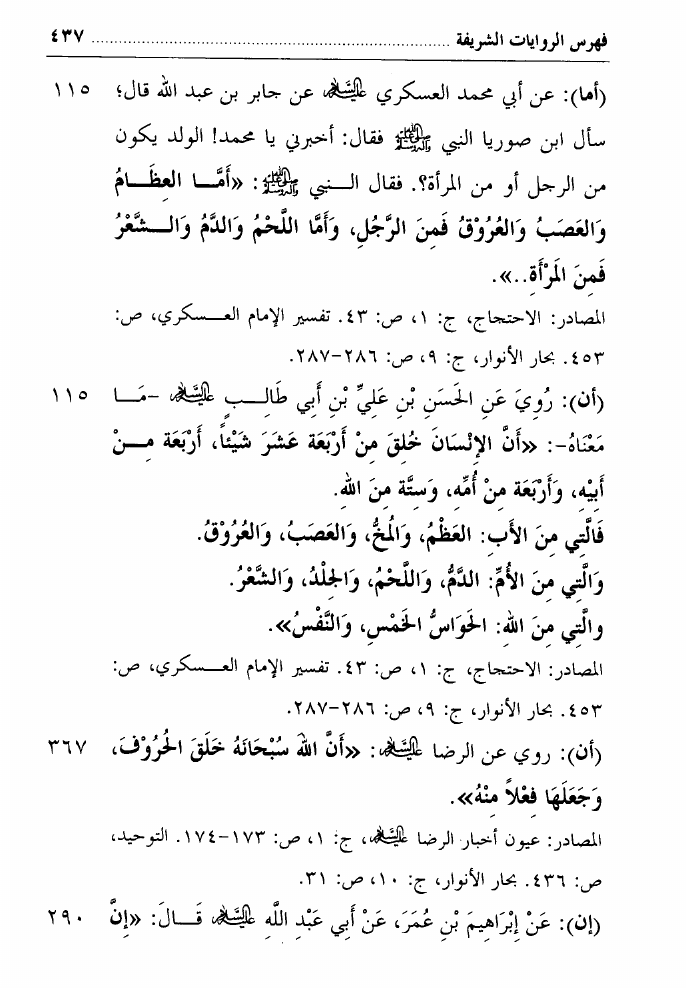 فهرس الروايات الشريفة ................................................................ ٤٣٧
(أما): عن أبي محمد العسكري عليه السلام عن جابر بن عبد الله قال؛ ١١٥
سأل ابن صوريا النبي صلى الله عليه وآله وسلم فقال: أخبرني يا محمد! الولد يكون
من الرجل أو من المرأة؟. فقال الـــنبي صلى الله عليه وآله وسلم: «أَمَّـــا العِظَـــامُ
وَالعَصَبُ وَالعُرُوْقُ فَمِنَ الرَّجُلِ، وَأَمَّا اللَّحْمُ وَالدَّمُ وَالـــشَّعْرُ
فَمِنَ المَرْأَةِ..».
المصادر: الاحتجاج، ج: ١، ص: ٤٣. تفسير الإمام العـــسكري، ص:
٤٥٣. بحار الأنوار، ج: ٩، ص: ٢٨٦-٢٨٧.
(أن): رُوِيَ عَنِ الحَسَنِ بْنِ عَلِيِّ بْنِ أَبِي طَالِـــبٍ عليه السلام -مَـــا ١١٥
مَعْنَاهُ-: «أَنَّ الإِنْسَانَ خُلِقَ مِنْ أَرْبَعَةَ عَشَرَ شَيْئاً، أَرْبَعَة مِـــنْ
أَبِيْهِ، وَأَرْبَعَة مِنْ أُمِّهِ، وَسِتَّة مِنَ اللهِ.
فَالَّتِي مِنَ الأَبِ: العَظْمُ، وَالمُخُّ، وَالعَصَبُ، وَالعُرُوْقُ.
وَالَّتِي مِنَ الأُمِّ: الدَّمُّ، وَاللَّحْمُ، وَالجِلْدُ، وَالشَّعْرُ.
والَّتِي مِنَ اللهِ: الحَوَاسُّ الخَمْسِ، وَالنَّفْسُ».
المصادر: الاحتجاج، ج: ١، ص: ٤٣. تفسير الإمام العـــسكري، ص:
٤٥٣. بحار الأنوار، ج: ٩، ص: ٢٨٦-٢٨٧.
(أن): روي عن الرضا عليه السلام: «أَنَّ اللهَ سُبْحَانَهُ خَلَقَ الحُرُوْفَ، ٣٦٧
وَجَعَلَهَا فِعْلاً مِنْهُ».
المصادر: عيون أخبار الرضا عليه السلام، ج: ١، ص: ١٧٣-١٧٤. التوحيد،
ص: ٤٣٦. بحار الأنوار، ج: ١٠، ص: ٣١.
(إن): عَنْ إِبْرَاهِيمَ بْنِ عُمَرَ، عَنْ أَبِي عَبْدِ اللَّهِ عليه السلام قَـــالَ: «إِنَّ ٢٩٠